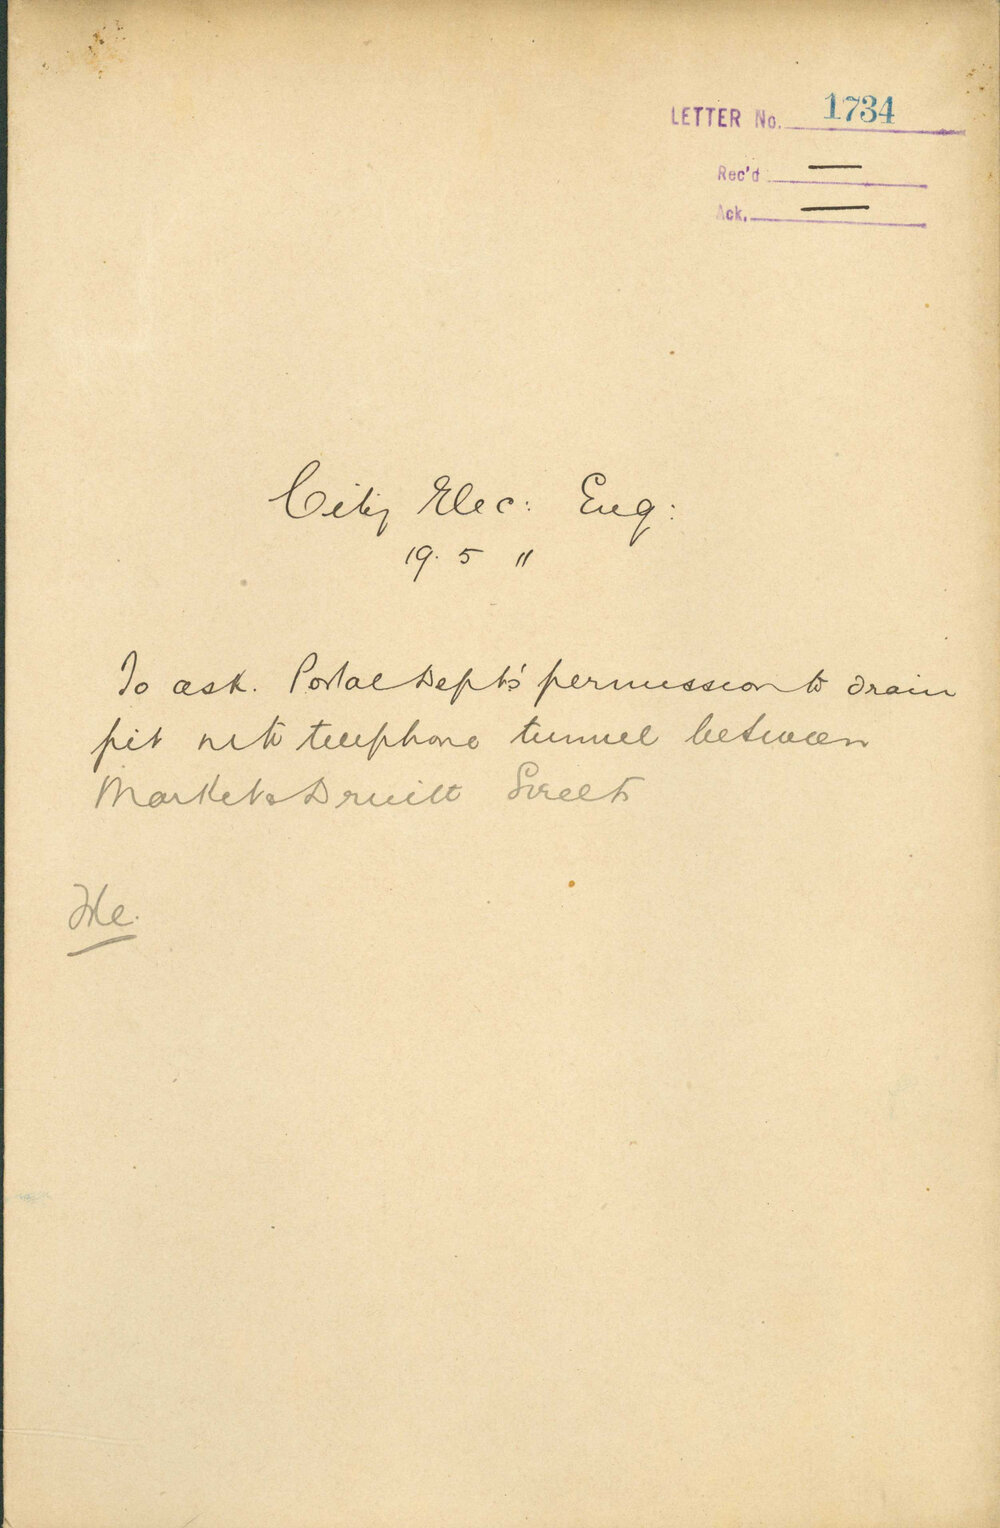 LETTER No. 1734
Rec'd —
Ack. —
City Elec: Eng:
19. 5 11
To ask. Postal Dept's permission to drain
pit into telephone tunnel between
Market & Druitt Streets